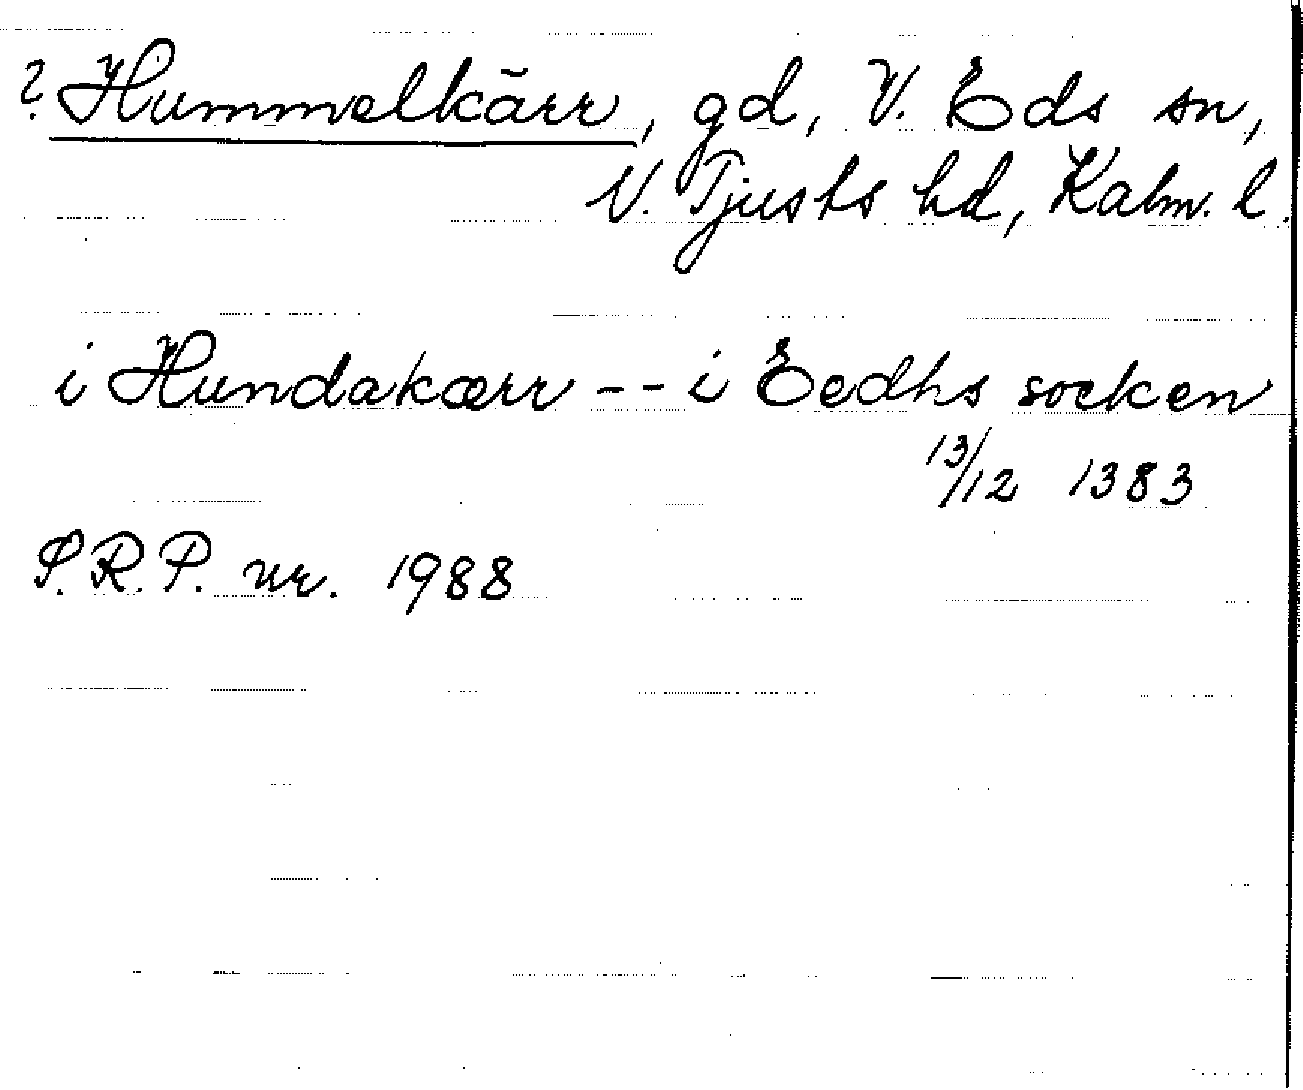 ? Hummelkärr, gd, V. Eds sn,
N. Tjusts hd, Kalm. l.
i Hundakærr -- i Eedhs socken
13/12 1383
S.R.P. nr. 1988